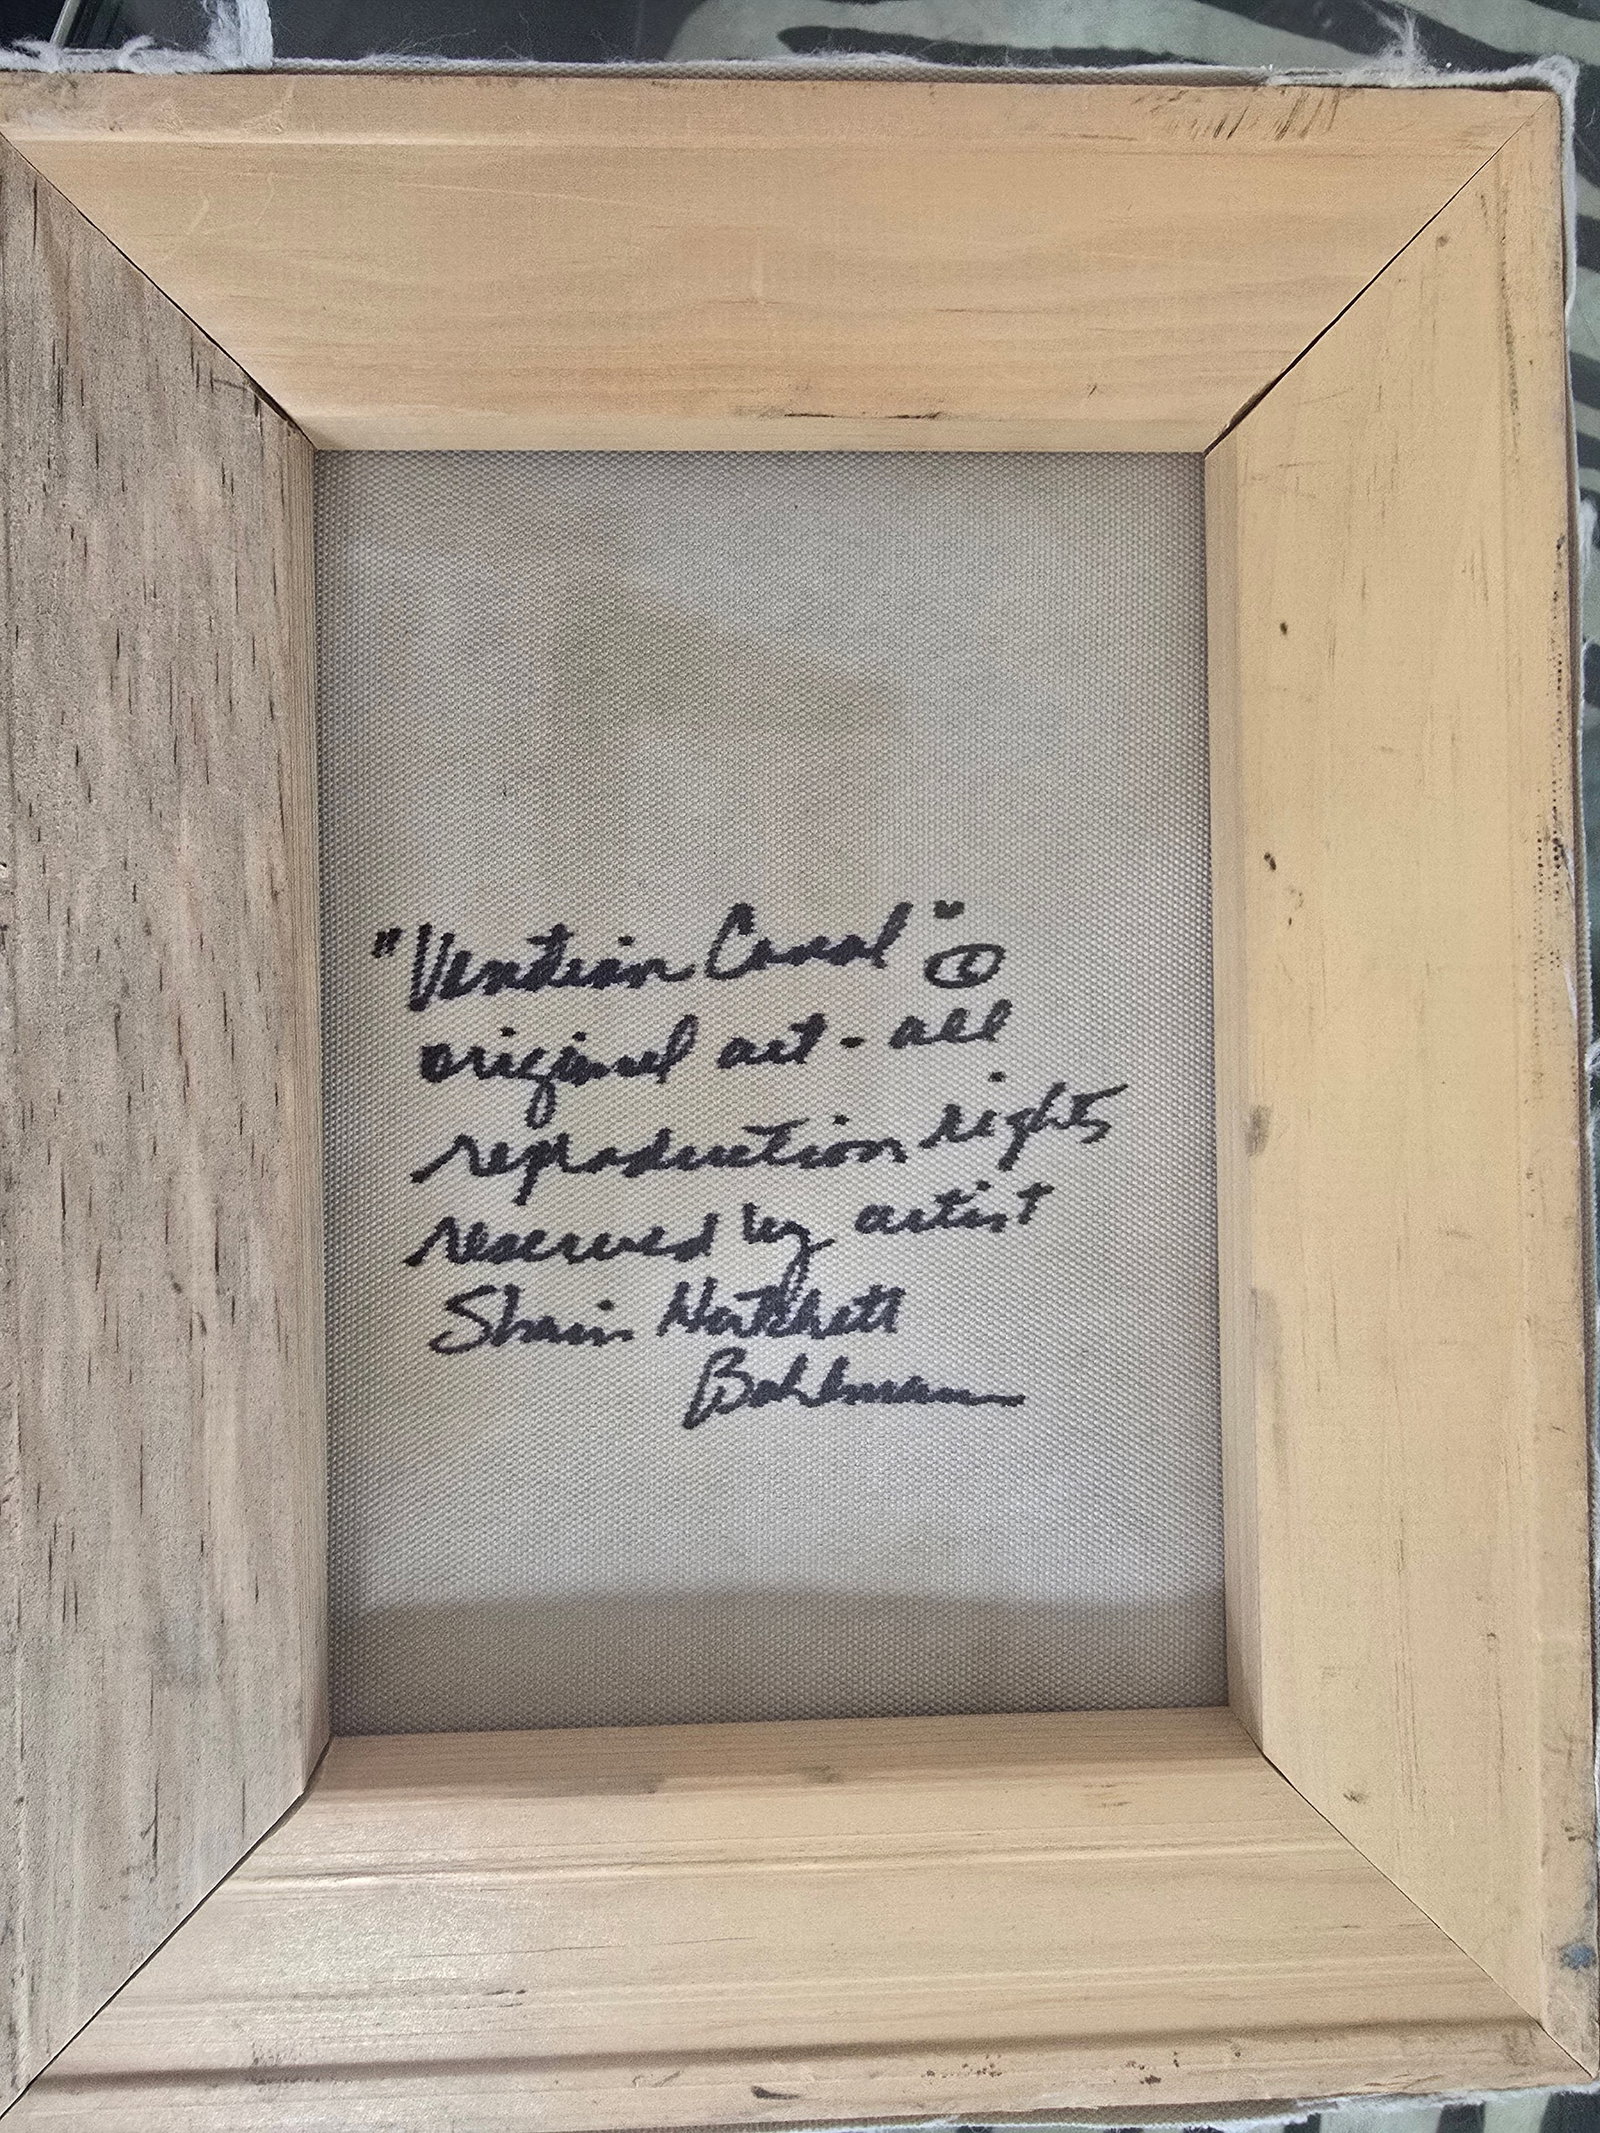 "Venetian Canal" ©
original art - all
reproduction rights
reserved by artist
Shain Hatchett
Bohlmann